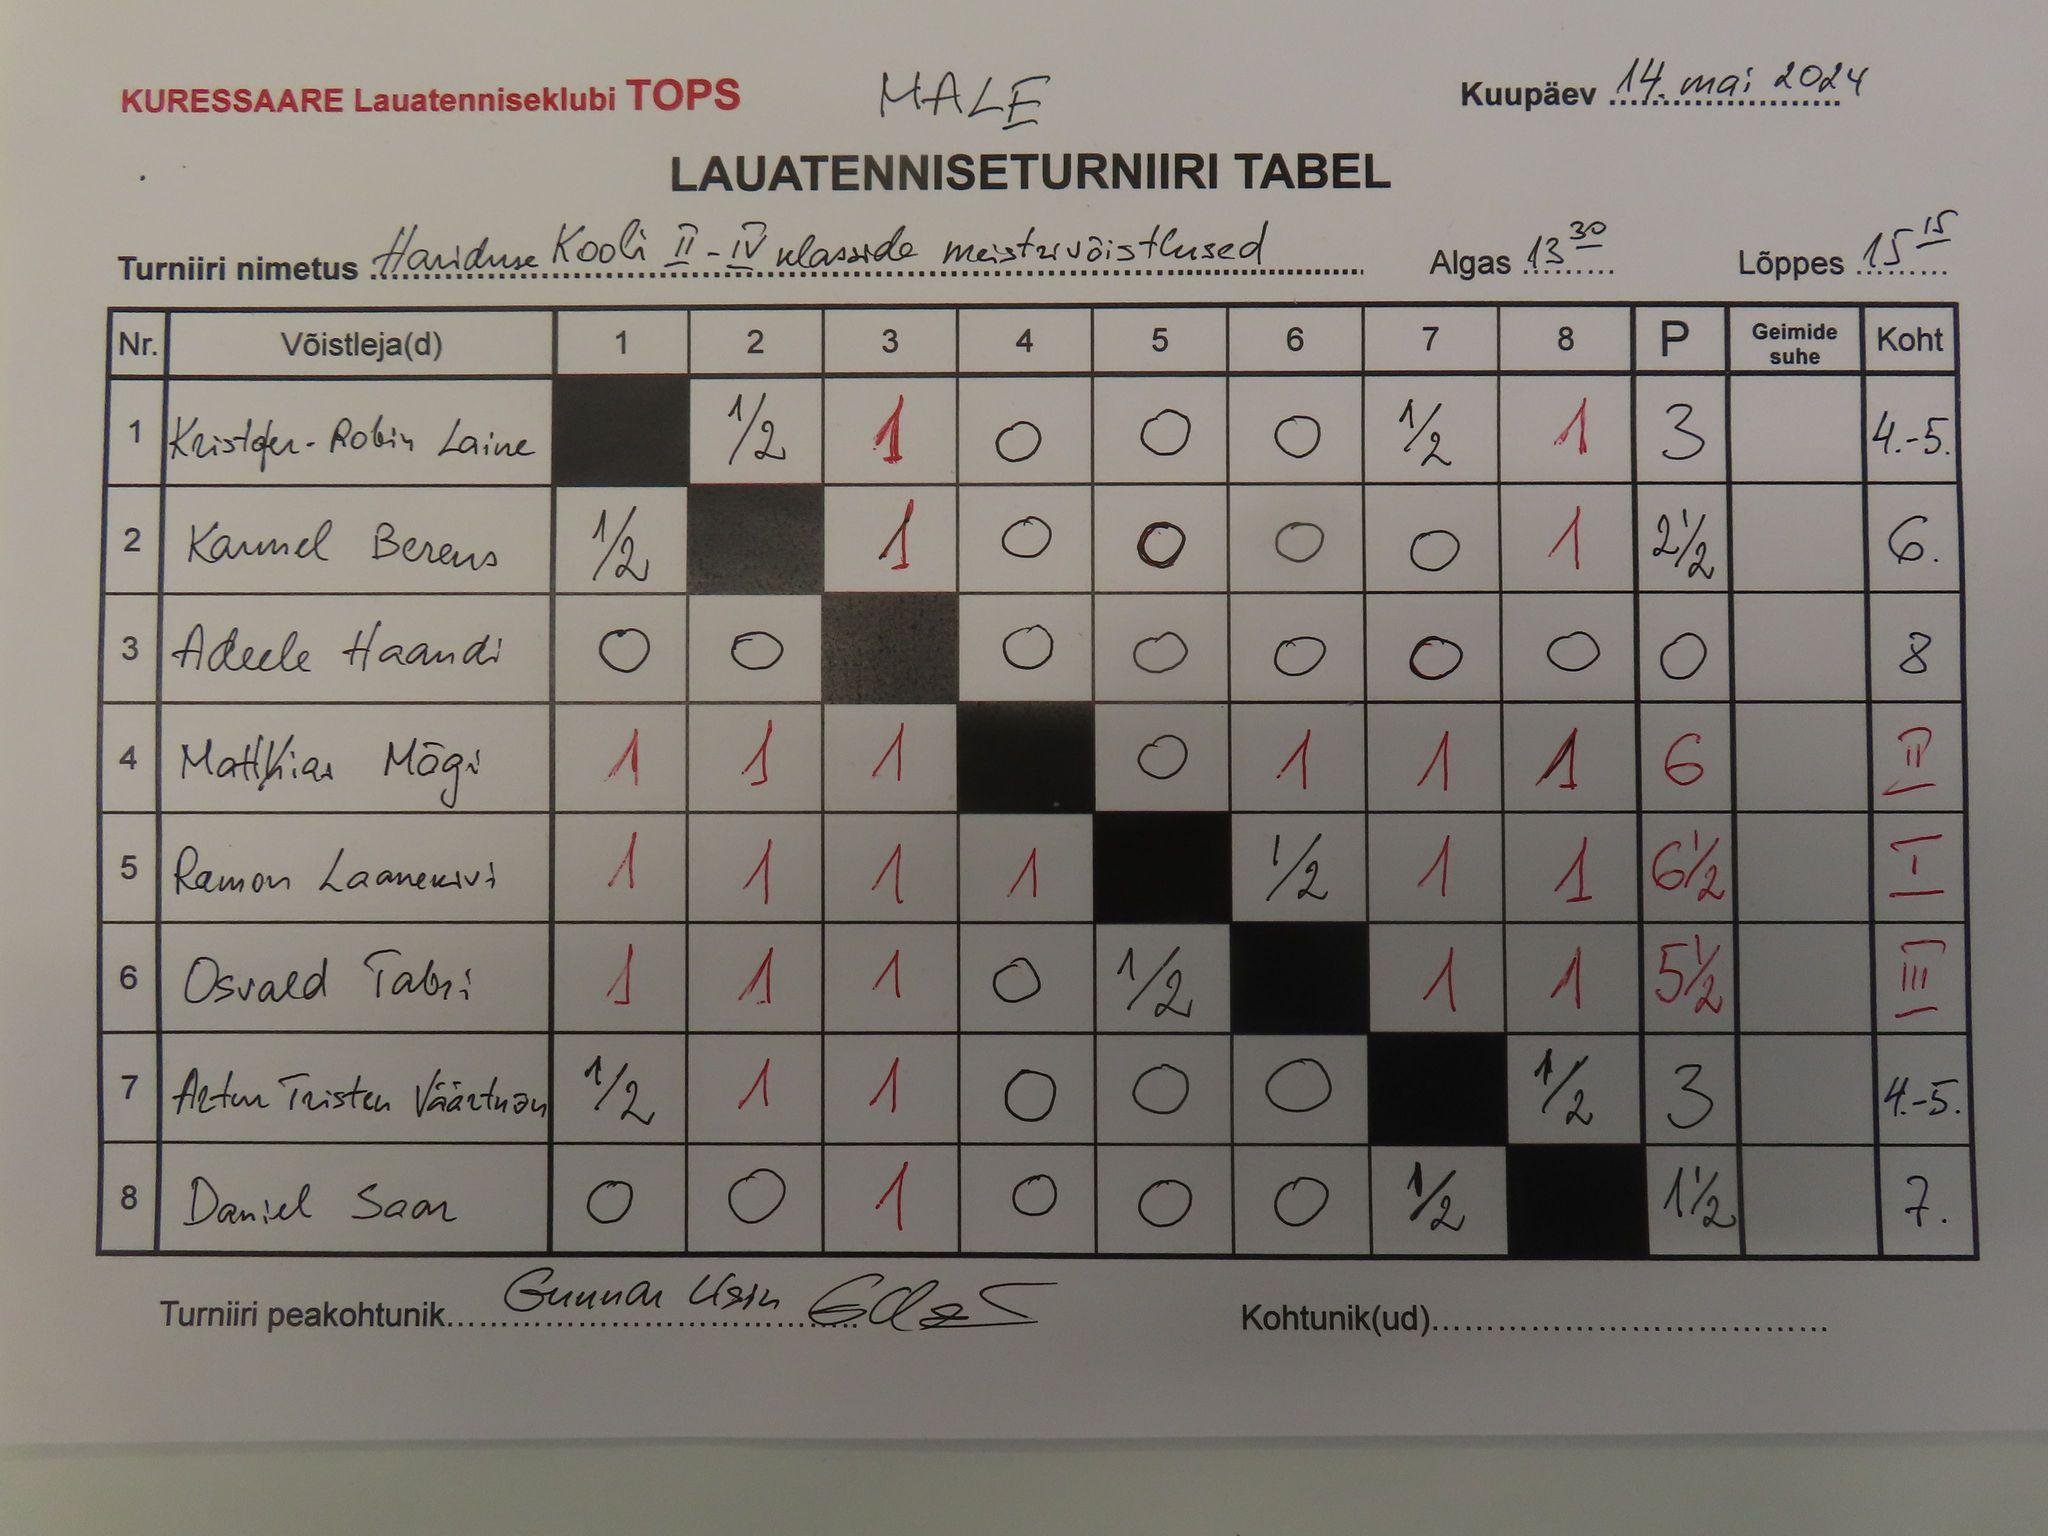 KURESSAARE Lauatenniseklubi TOPS MALE Kuupäev 14. mai 2024
LAUATENNISETURNIIRI TABEL
Turniiri nimetus Hariduse Kooli II - IV klasside meistrivõistlused Algas 13 30 Lõppes 15 15
Nr. Võistleja(d) 1 2 3 4 5 6 7 8 P Geimide suhe Koht
1 Robin Laine 1/2 1 0 0 0 1/2 1 3 4.-5.
2 Karmel Berens 1/2 1 0 0 0 0 1 2 1/2 6.
3 Adeele Haandi 0 0 0 0 0 0 0 0 8
4 Mägi 1 1 1 0 1 1 1 6 II
5 Ramon Laanekivi 1 1 1 1 1/2 1 1 6 1/2 I
6 Osvald Tabri 1 1 1 0 1/2 1 1 5 1/2 III
7 Artur Tristen 1/2 1 1 0 0 0 1/2 3 4.-5.
8 Daniel Saar 0 0 1 0 0 0 1/2 1 1/2 7.
Turniiri peakohtunik Gunnar Usin Kohtunik(ud)